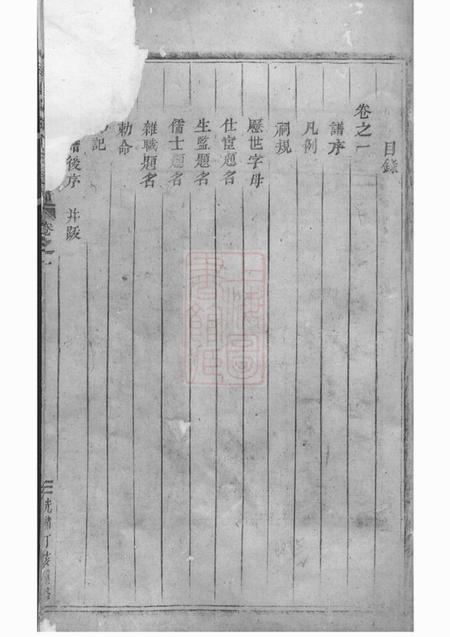 目錄
卷之一
譜序
凡例
祠規
歷世字母
仕宦題名
生監題名
儒士題名
雜職題名
勅命
記
後序 井跋
卷之一
光緒丁亥
上海圖書館藏